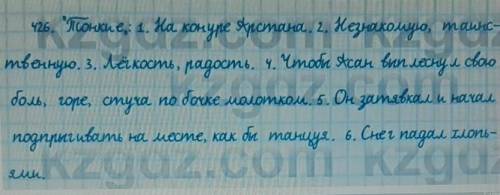 426. "Тонкие": 1. На конуре Арстана. 2. Незнакомую, таинс-
твенную. 3. Лёгкость, радость. 4. Чтобы Асан выплеснул свою
боль, горе, стуча по бочке молотком. 5. Он затявкал и начал
подпрыгивать на месте, как бы танцуя. 6. Снег падал хлопь-
ями.
kzgdz.com